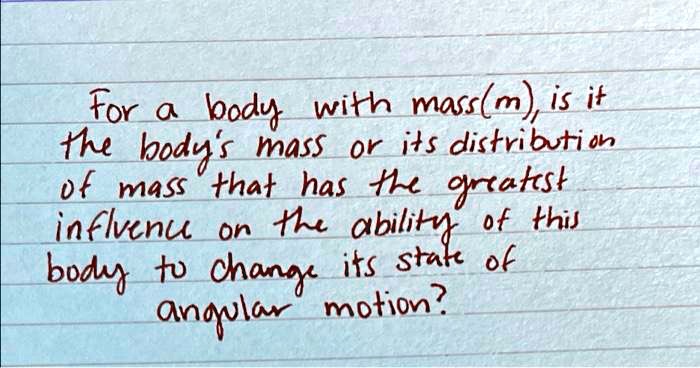 For a body with mass(m), is it
the body's mass or its distribution
of mass that has the greatest
influence on the ability of this
body to change its state of
angular motion?